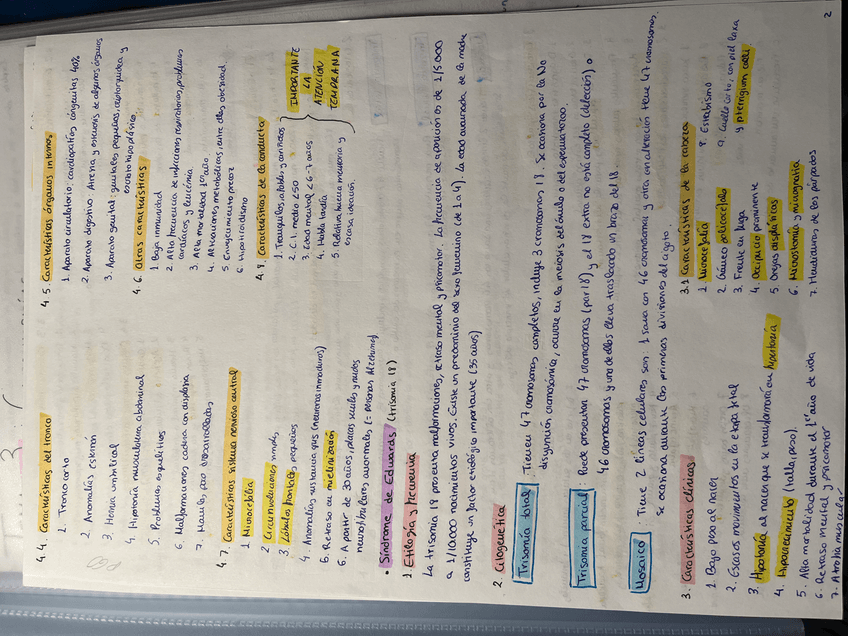 4.4. Características del tronco
1. Tronco corto
2. Anomalías esternón
3. Hernia umbilical
4. Hipotonía musculatura abdominal
5. Problemas esqueléticos
6. Malformaciones cadera con displasia
7. Manos, pies
4.7. Características sistema nervioso central
1. Microcefalia
2. Circunvoluciones simples
3. Lóbulos frontales pequeños
4. Anomalías sustancia gris (neuronas inmaduras)
6. Retraso en mielinización
6. A partir de 30 años, placas seniles y nudos
neurofibrilares anormales, (= personas Alzheimer)
4.5. Características órganos internos
1. Aparato circulatorio: cardiopatías congénitas 40%
2. Aparato digestivo: Atresia y estenosis de algunos órganos
3. Aparato genital: genitales pequeños, criptorquidea y
escroto hipoplásico.
4.6. Otras características
1 Baja inmunidad
2 Alta frecuencia de infecciones respiratorias, problemas
cardiacos, y leucemia
3. Alta mortalidad 1er año
4. Alteraciones metabólicas, entre ellas obesidad
5. Envejecimiento precoz
6. Hipotiroidismo
4.8. Características de la conducta
1. Tranquilos, afables y cariñosos
2. C.I. medio <50
3. Edad mental < 6-7 años
4. Habla tardía
5. Relativa buena memoria y
escasa
IMPORTANTE
LA
ATENCIÓN
TEMPRANA
• Síndrome de Edwards (trisomía 18)
1. Etiología y frecuencia
La trisomía 18 presenta malformaciones, retraso mental y psicomotor. La frecuencia de aparición es de 1/5.000
a 1/10.000 nacimientos vivos. Existe un predominio del sexo femenino (de 1 a 4). La edad avanzada de la madre
constituye un factor etiológico importante (35 años)
2. Citogenética
Trisomía total: Tienen 47 cromosomas completos, incluye 3 cromosomas 18. Se ocasiona por la No
disyunción cromosómica, ocurre en la meiosis del óvulo o del espermatozoo.
Trisomía parcial: Puede presentar 47 cromosomas (par 18) y el 18 extra no está completo (delección) o
46 cromosomas y uno de ellos lleva traslocado un brazo del 18.
Mosaico: Tiene 2 líneas celulares son: 1 sana con 46 cromosomas y otra con alteración tiene 47 cromosomas.
Se ocasiona durante las primeras divisiones del cigoto.
3. Características clínicas
1. Bajo peso al nacer
2. Escasos movimientos en la etapa fetal
3. Hipotonía al nacer que se transformará en hipertonía
4. Hipocrecimiento (talla, peso).
5. Alta mortalidad durante el 1er año de vida
6. Retraso mental y psicomotor
7. Atrofia muscular
3.1 Características de la cabeza
1. Microcefalia
2. Cráneo dolicocéfalo
3. Frente en fuga
4. Occipucio prominente
5. Orejas displásicas
6. Microstomía y micrognatia
7. Hendiduras de los párpados
8. Estrabismo
9. Cuello corto: con piel laxa
y pterigium colli
2